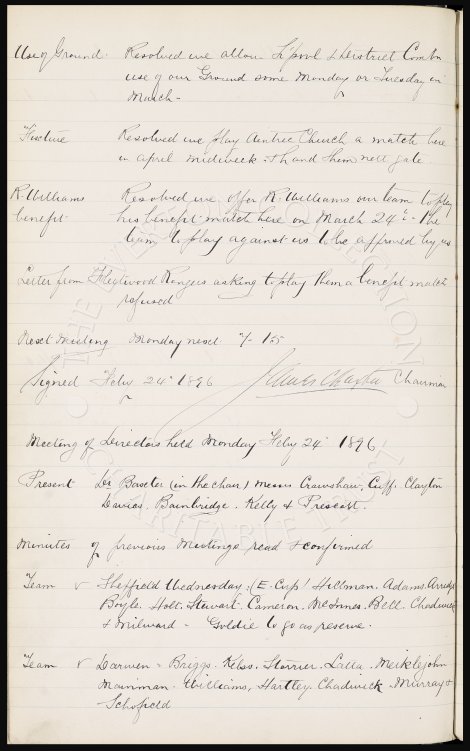 Use of Ground. Resolved we allow L'pool & District Combn
use of our Ground some Monday or Tuesday in
March -
Fixture Resolved we play Aintree Church a match here
in april midweek & hand them nett gate
R. Williams Resolved we offer R. Williams our team to play
benefit his benefit match here on March 24th - the
team to play against us to be approved by us
Letter from Fleetwood Rangers asking to play them a benefit match
refused
Next Meeting Monday next 7/15
Signed Feby 24 1896 James Clayton Chairman
Meeting of Directors held Monday Feby 24 1896
Present Dr Baxter (in the chair) Messrs Crawshaw, Cuff, Clayton
Davies, Bainbridge, Kelly & Prescott.
Minutes of previous Meetings read & confirmed
Team v Sheffield Wednesday: (E. Cup) Hillman. Adams. Arridge
Boyle. Holt. Stewart. Cameron. McInnes. Bell. Chadwick
& Milward - Goldie to go as reserve.
Team v Darwen - Briggs. Kelso. Storrier. Latta. Meiklejohn
Mainman. Williams, Hartley. Chadwick. Murray &
Schofield
THE EVERTON COLLECTION
CHARITABLE TRUST